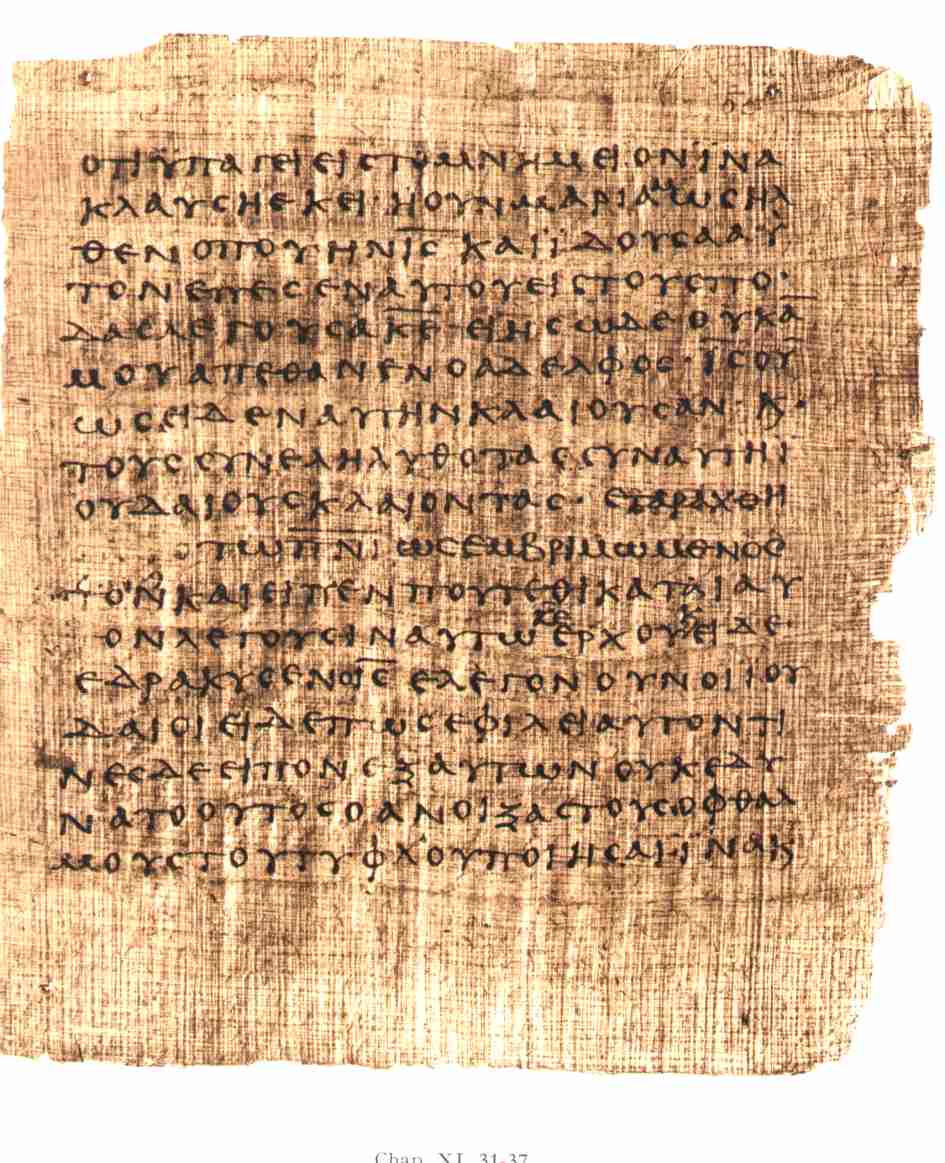 οτι ϋπαγει εις το μνημειον ϊνα
κλαυση εκει· η ουν μαριαμ ως ηλ
θεν οπου ην ις και ϊδουσα αυ
τον επεσεν αυτου εις τους πο·
δας λεγουσα κε ει ης ωδε ουκ α
μου απεθανεν ο αδελφος· ις ου
ως ειδεν αυτην κλαιουσαν· κ·
τους συνεληλυθοτας συν αυτη ϊ
ουδαιους κλαιοντας· εταραχθη
τω πνι ως εμβριμωμενος
και ειπεν που τεθικαται αυ
ον λεγουσιν αυτω κε ερχου κ ειδε·
εδρακυσεν ο ις ελεγον ουν οι ιου
δαιοι ειδε πως εφιλει αυτον τι
νες δε ειπον εξ αυτων ουκ εδυ
νατο ουτος ο ανοιξας τους οφθαλ
μους του τυφλου ποιησαι ϊνα κ
Chap. XI, 31-37